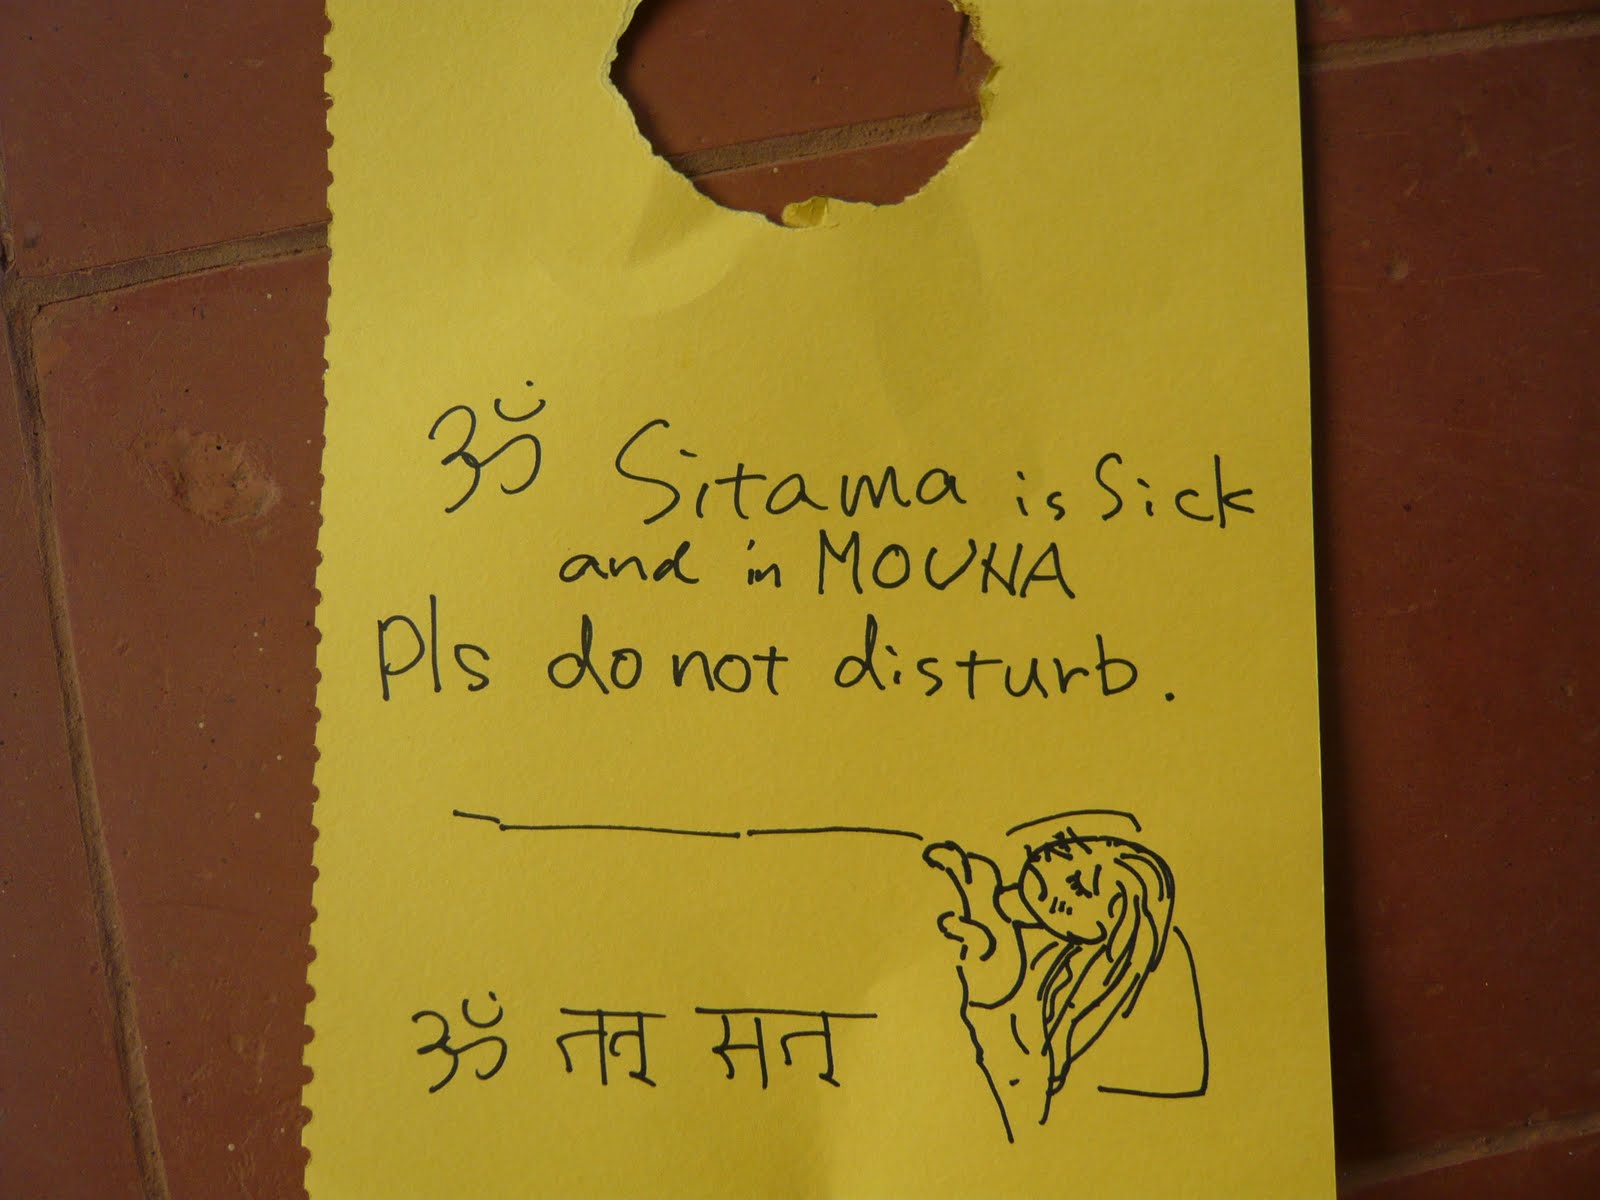 ॐ Sitama is Sick
and in MOUNA
Pls do not disturb.
ॐ तत् सत्